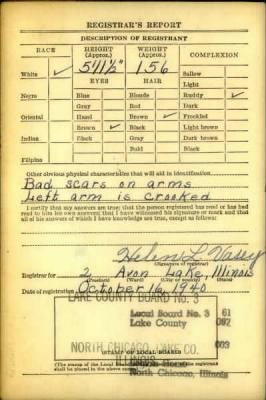 REGISTRAR'S REPORT
DESCRIPTION OF REGISTRANT
RACE HEIGHT (Approx.) WEIGHT (Approx.) COMPLEXION
White ✓ 5'11½" 156 Sallow
EYES HAIR Light
Negro Blue Blonde Ruddy ✓
Gray Red Dark
Oriental Hazel Brown ✓ Freckled
Brown ✓ Black Light brown
Indian Black Gray Dark brown
Bald Black
Filipino
Other obvious physical characteristics that will aid in identification
Bad scars on arms
Left arm is crooked
I certify that my answers are true; that the person registered has read or has had
read to him his own answers; that I have witnessed his signature or mark and that
all of his answers of which I have knowledge are true, except as follows:
Helen L.
(Signature of registrar)
Registrar for 2 Avon Lake, Illinois
(Precinct) (Ward) (City or county) (State)
Date of registration October 16, 1940
LAKE COUNTY BOARD NO. 3
Local Board No. 3 61
Lake County 097
003
NORTH CHICAGO, LAKE CO
ILLINOIS
(STAMP OF LOCAL BOARD)
(The stamp of the Local Board
shall be placed in the above space.)
North Chicago, Illinois